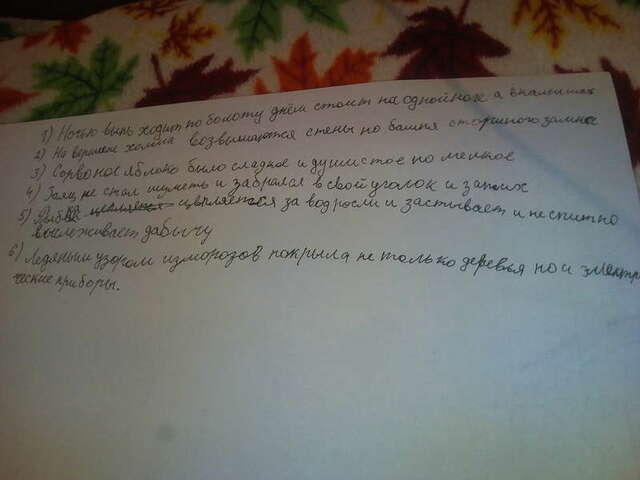 1) Ночью выпь ходит по болоту днём стоит на одной ноге а в камышах
2) На вершине холма возвышаются стены но башня старинного замка
3) Сорваное яблоко было сладкое и душистое но мелкое
4) Заяц не стал шуметь и забрался в свой уголок и затих
5) цепляется за водросли и застывает и неспитно
выслеживает дабычу
6) Ледяным узором изморозов покрыла не только деревья но и электри
ческие приборы.